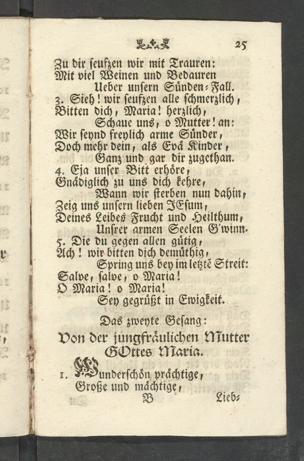 25
Zu dir seufzen wir mit Trauren:
Mit viel Weinen und Bedauren
Ueber unsern Sünden-Fall.
3. Sieh! wir seufzen alle schmerzlich,
Bitten dich, Maria! herzlich,
Schaue uns, o Mutter! an:
Wir seynd freylich arme Sünder,
Doch mehr dein, als Evä Kinder,
Ganz und gar dir zugethan.
4. Eja unser Bitt erhöre,
Gnädiglich zu uns dich kehre,
Wann wir sterben nun dahin,
Zeig uns unsern lieben JEsum,
Deines Leibes Frucht und Heilthum,
Unsrer armen Seelen G'winn.
5. Die du gegen allen gütig,
Ach! wir bitten dich demüthig,
Spring uns bey im letztē Streit:
Salve, salve, o Maria!
O Maria! o Maria!
Sey gegrüßt in Ewigkeit.
Das zweyte Gesang:
Von der jungfräulichen Mutter
GOttes Maria.
1. Wunderschön prächtige,
Große und mächtige,
B Lieb-